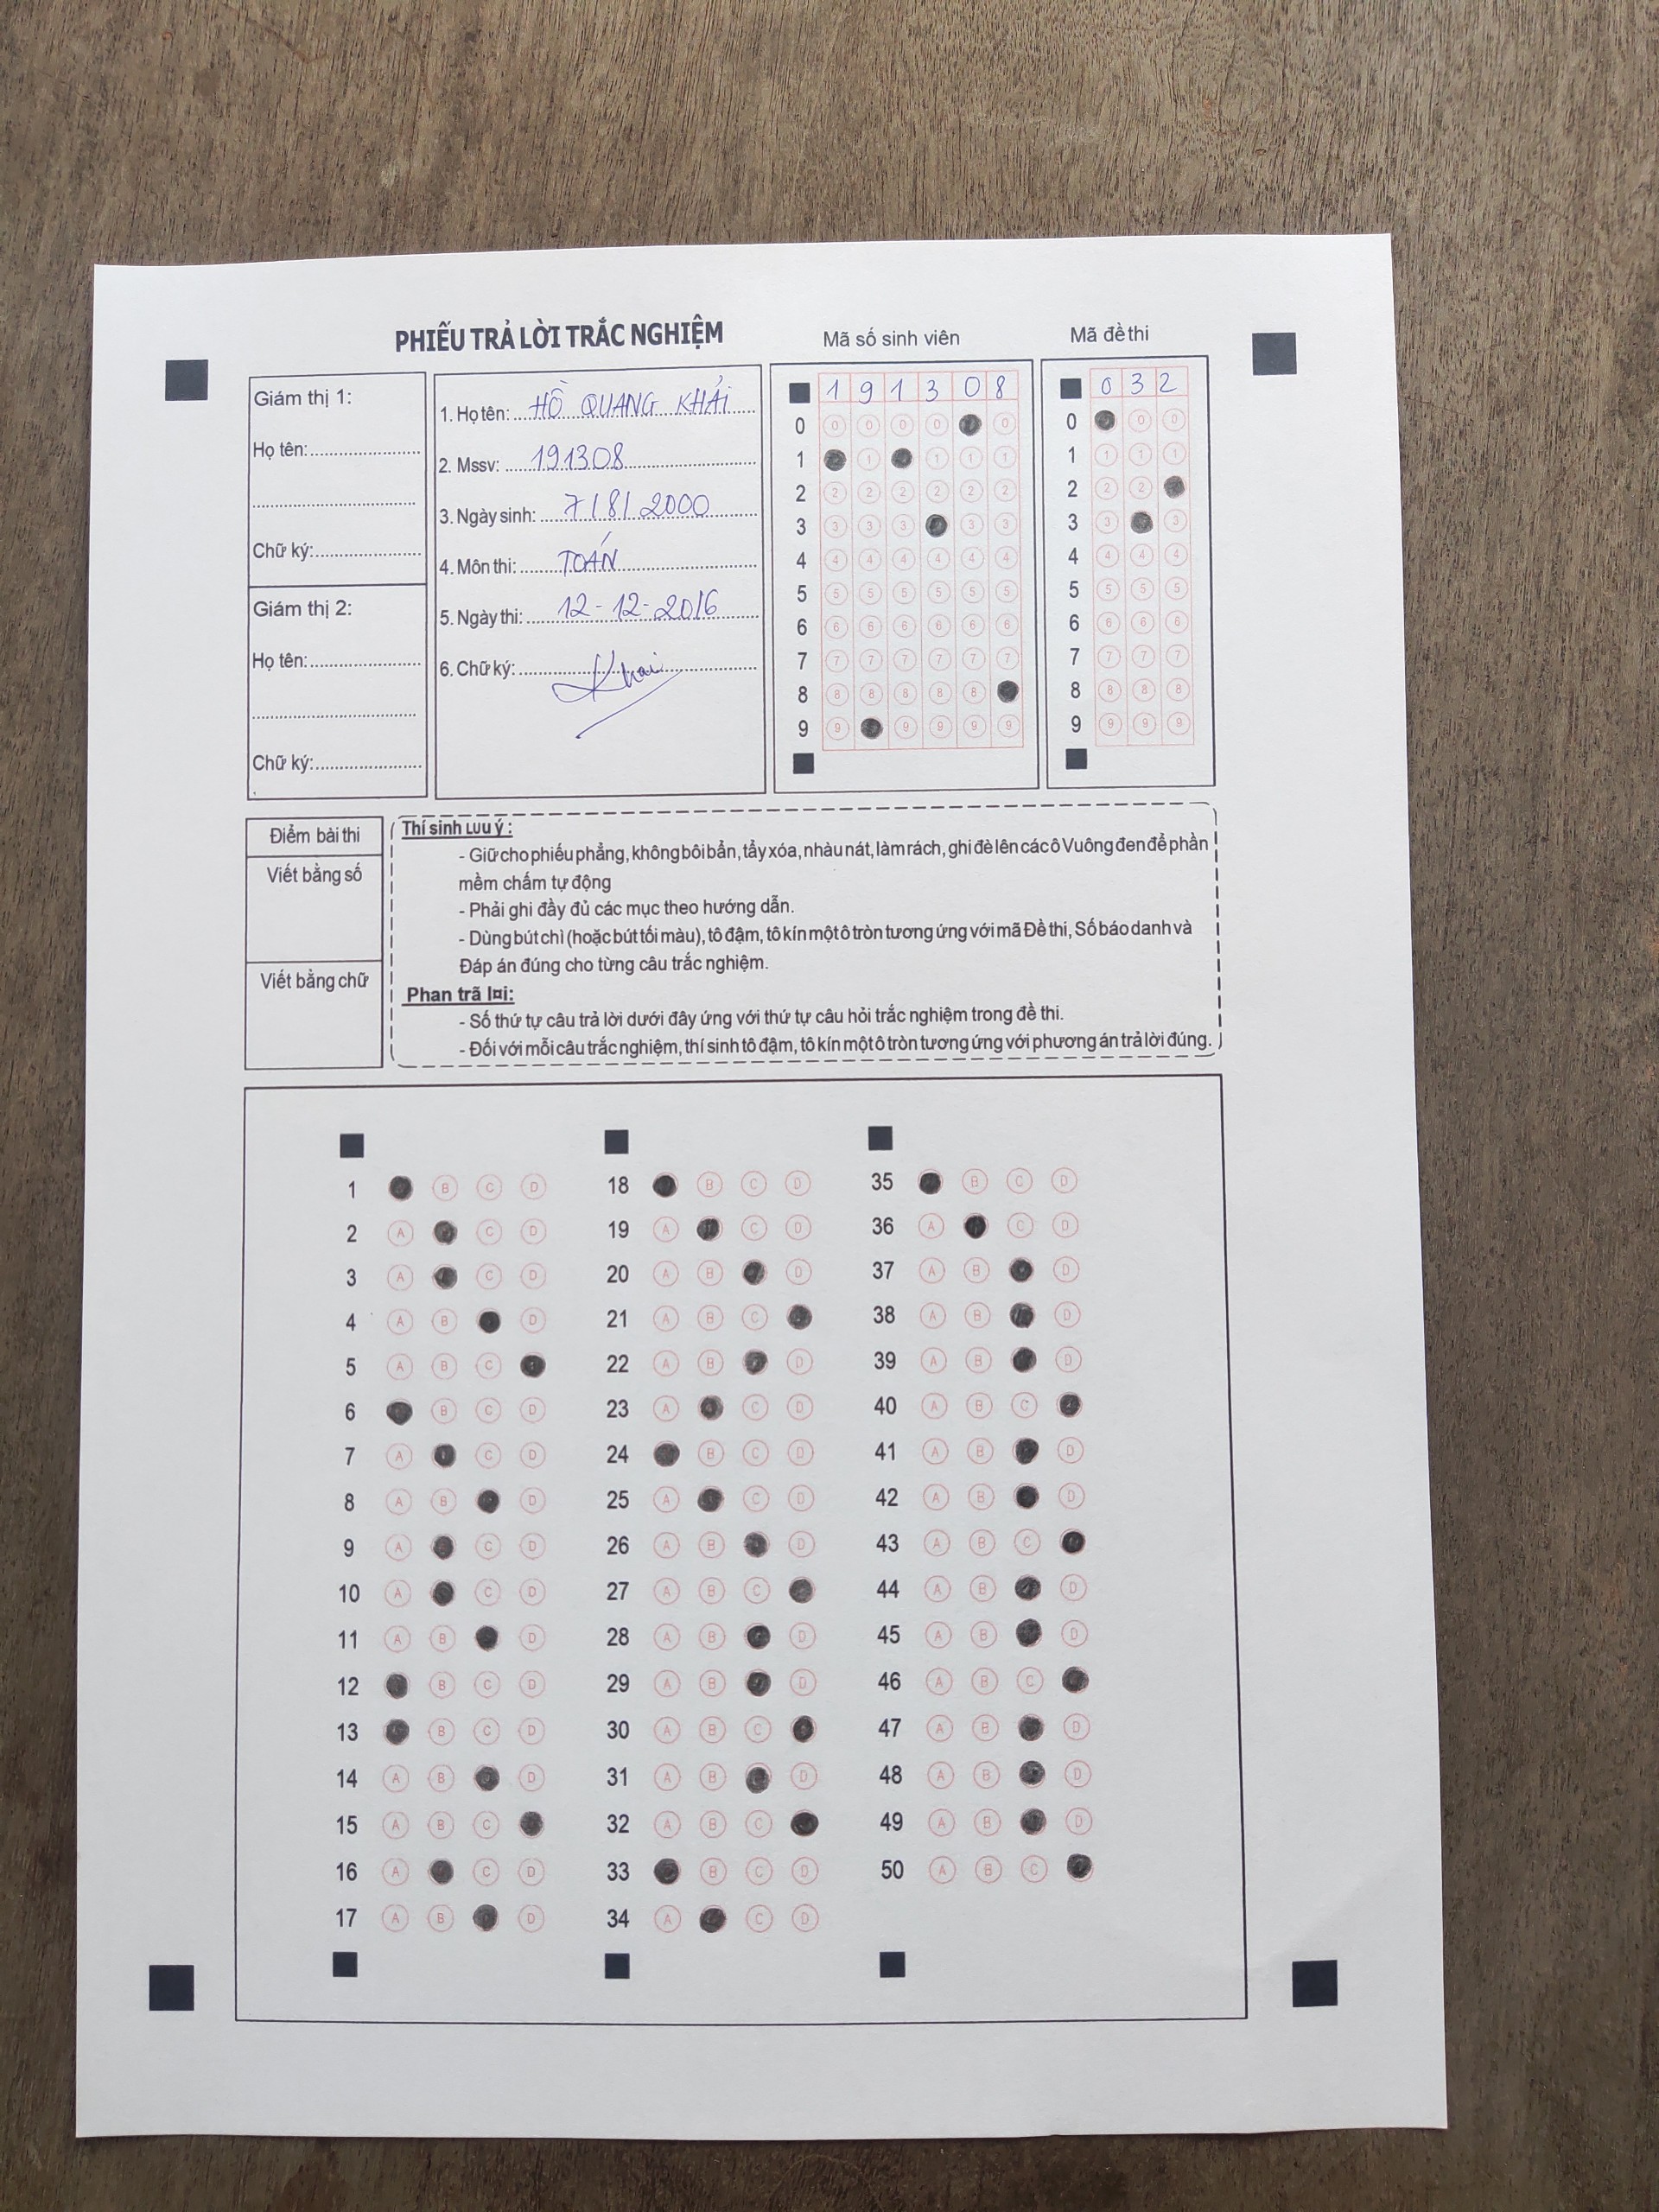 PHIẾU TRẢ LỜI TRẮC NGHIỆM
Mã số sinh viên
Mã đề thi
Giám thị 1:
Họ tên:
Chữ ký:
Giám thị 2:
Họ tên:
Chữ ký:
1. Họ tên: HỒ QUANG KHẢI
2. Mssv: 191308
3. Ngày sinh: 7/8/2000
4. Môn thi: TOÁN
5. Ngày thi: 12-12-2016
6. Chữ ký: Khai
1 9 1 3 0 8
0 0 0 0 0 0
1 1 1 1 1
2 2 2 2 2 2 2
3 3 3 3 3 3
4 4 4 4 4 4 4
5 5 5 5 5 5 5
6 6 6 6 6 6 6
7 7 7 7 7 7 7
8 8 8 8 8 8
9 9 9 9 9 9
0 3 2
0 0 0
1 1 1 1
2 2 2
3 3 3
4 4 4 4
5 5 5 5
6 6 6 6
7 7 7 7
8 8 8 8
9 9 9 9
Điểm bài thi
Viết bằng số
Viết bằng chữ
Thí sinh Lưu ý :
- Giữ cho phiếu phẳng, không bôi bẩn, tẩy xóa, nhàu nát, làm rách, ghi đè lên các ô Vuông đen để phần
mềm chấm tự động
- Phải ghi đầy đủ các mục theo hướng dẫn.
- Dùng bút chì (hoặc bút tối màu), tô đậm, tô kín một ô tròn tương ứng với mã Đề thi, Số báo danh và
Đáp án đúng cho từng câu trắc nghiệm.
Phan trã l¤i:
- Số thứ tự câu trả lời dưới đây ứng với thứ tự câu hỏi trắc nghiệm trong đề thi.
- Đối với mỗi câu trắc nghiệm, thí sinh tô đậm, tô kín một ô tròn tương ứng với phương án trả lời đúng.
1 B C D
2 A C D
3 A C D
4 A B D
5 A B C
6 B C D
7 A C D
8 A B D
9 A C D
10 A C D
11 A B D
12 B C D
13 B C D
14 A B D
15 A B C
16 A C D
17 A B D
18 B C D
19 A C D
20 A B D
21 A B C
22 A B D
23 A C D
24 B C D
25 A C D
26 A B D
27 A B C
28 A B D
29 A B D
30 A B C
31 A B D
32 A B C
33 B C D
34 A C D
35 B C D
36 A C D
37 A B D
38 A B D
39 A B D
40 A B C
41 A B D
42 A B D
43 A B C
44 A B D
45 A B D
46 A B C
47 A B D
48 A B D
49 A B D
50 A B C